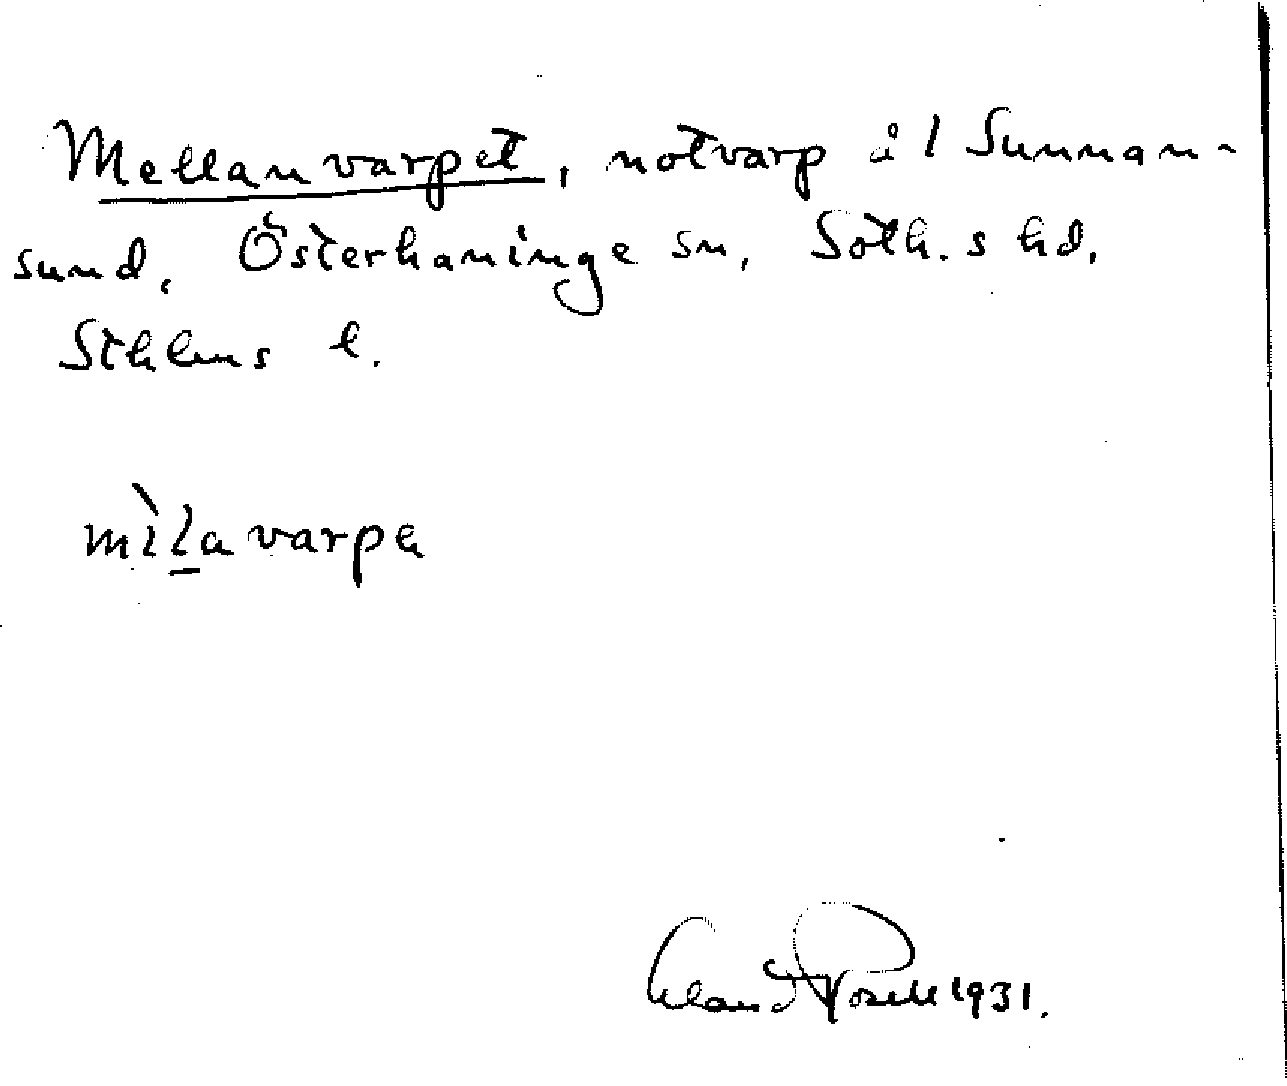 Mellanvarpet, notvarp å l Sunnan-
sund, Österhaninge sn, Soth. s hd,
Sthlms l.
mìlavarpa
1931.